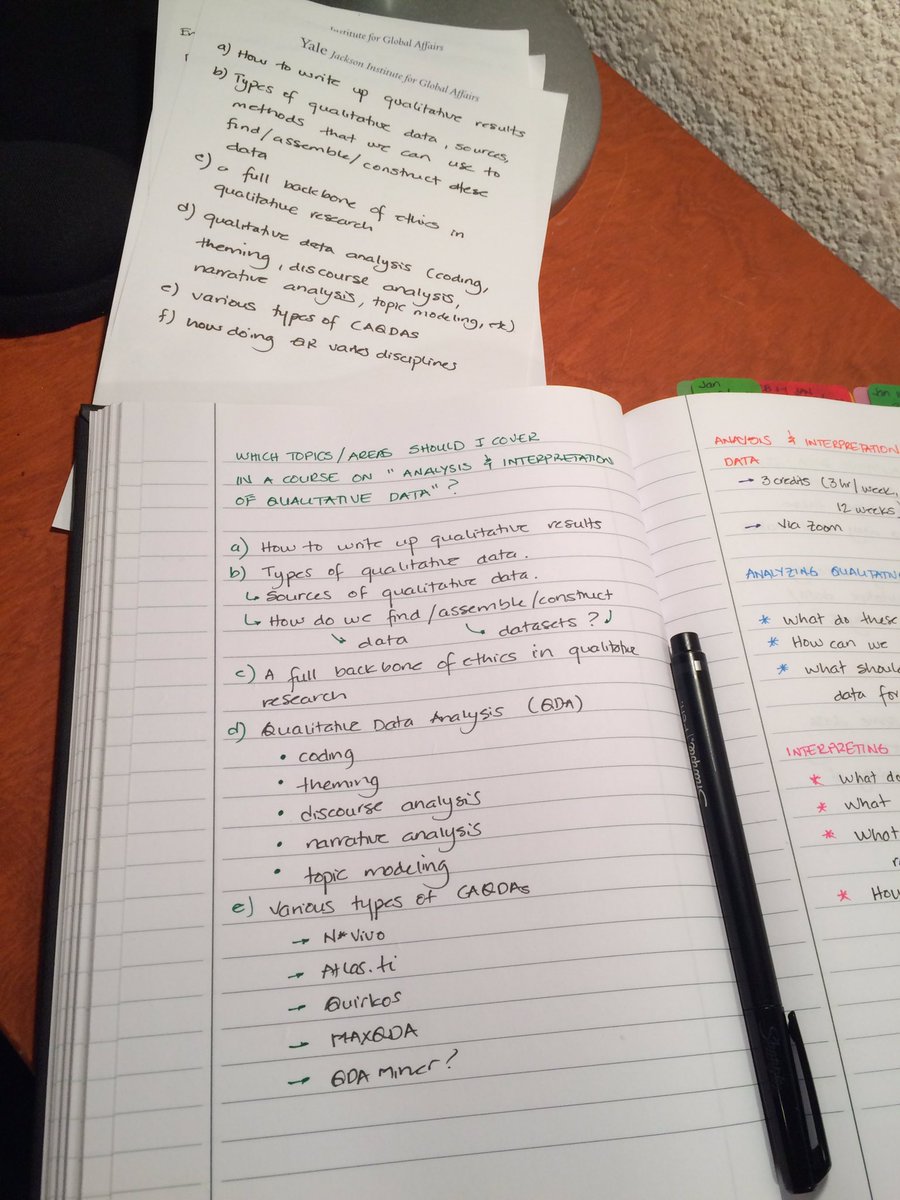 Institute for Global Affairs
Yale Jackson Institute for Global Affairs
a) How to write up qualitative results
b) Types of qualitative data, sources,
methods that we can use to
find/assemble/construct these
data
c) a full backbone of ethics in
qualitative research
d) qualitative data analysis (coding,
theming, discourse analysis,
narrative analysis, topic modeling, etc)
e) various types of CAQDAS
f) how doing QR varies disciplines
WHICH TOPICS/AREAS SHOULD I COVER
IN A COURSE ON "ANALYSIS & INTERPRETATION
OF QUALITATIVE DATA"?
a) How to write up qualitative results
b) Types of qualitative data.
↳ Sources of qualitative data.
↳ How do we find/assemble/construct
data datasets?
c) A full backbone of ethics in qualitative
research
d) Qualitative Data Analysis (QDA)
• coding
• theming
• discourse analysis
• narrative analysis
• topic modeling
e) Various types of CAQDAS
→ N*Vivo
→ Atlas.ti
→ Quirkos
→ MAXQDA
→ QDA Miner?
Jan
Jan
ANALYSIS & INTERPRETATION
DATA
→ 3 credits (3 hr/week,
12 weeks)
→ Via Zoom
ANALYZING QUALITATIV
* what do these
* How can we
* what shoul
data for
INTERPRETING
* what do
* what
* what
* How
Sharpie Pen